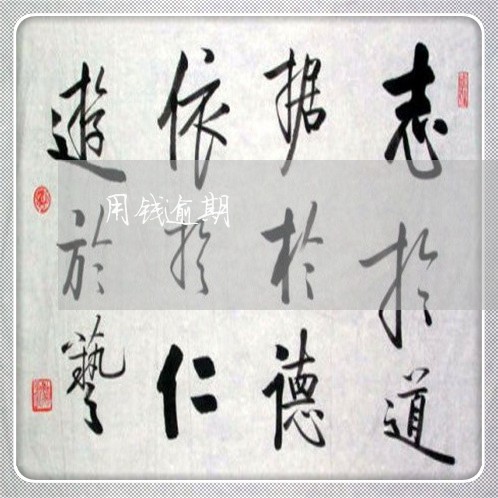 志於道
据於德
依於仁
遊於藝
用钱逾期